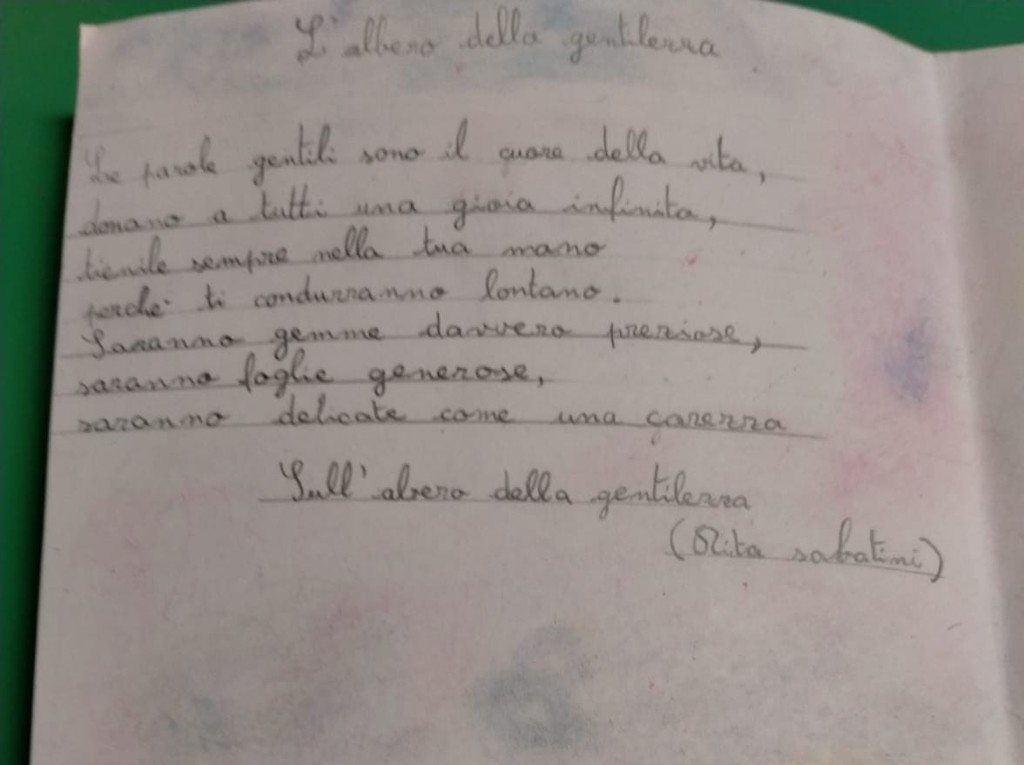 L'albero della gentilezza
Le parole gentili sono il quore della vita,
donano a tutti una gioia infinita,
tienile sempre nella tua mano
perchè ti condurranno lontano.
Saranno gemme davvero preziose,
saranno foglie generose,
saranno delicate come una carezza
Sull'alvero della gentilezza
(Rita sabatini)